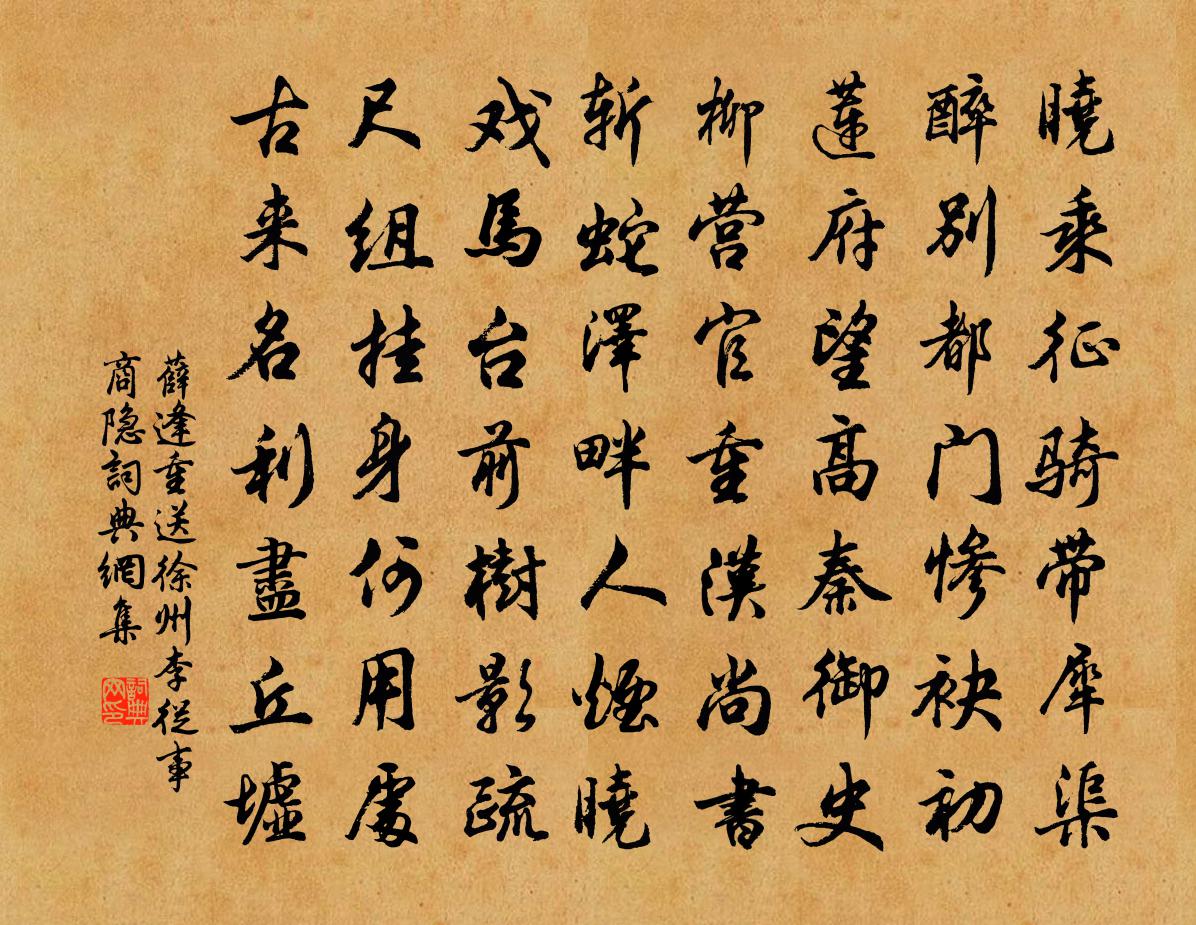 曉乘征骑带犀渠
醉别都门惨袂初
蓮府望高秦御史
柳营官重漢尚書
斬蛇澤畔人煙曉
戏馬台前樹影疏
尺组挂身何用處
古来名利盡丘墟
薛逢重送徐州李從事
商隐詞典網集
詞典網印